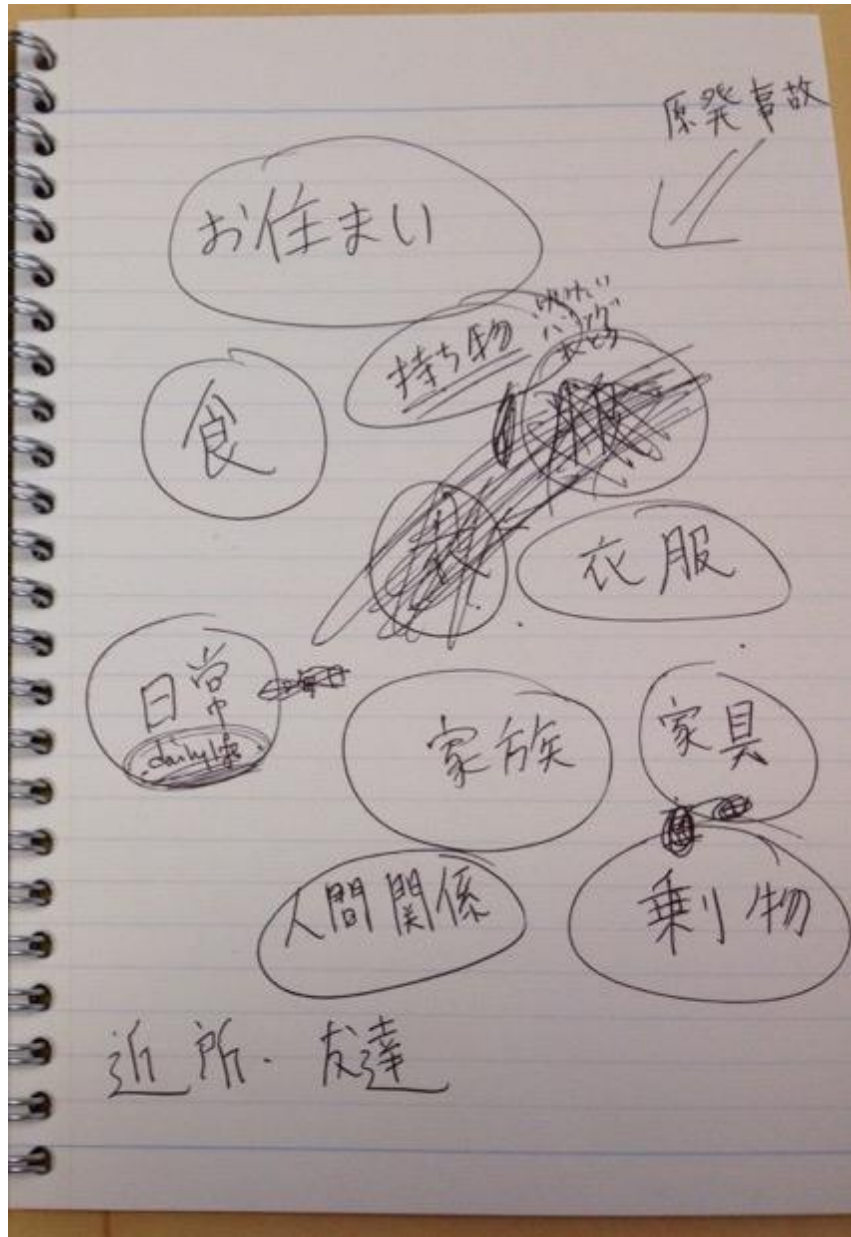 原発事故
お住まい
持ち物
食
衣服
日常
daily life
家族
家具
人間関係
乗り物
近所・友達